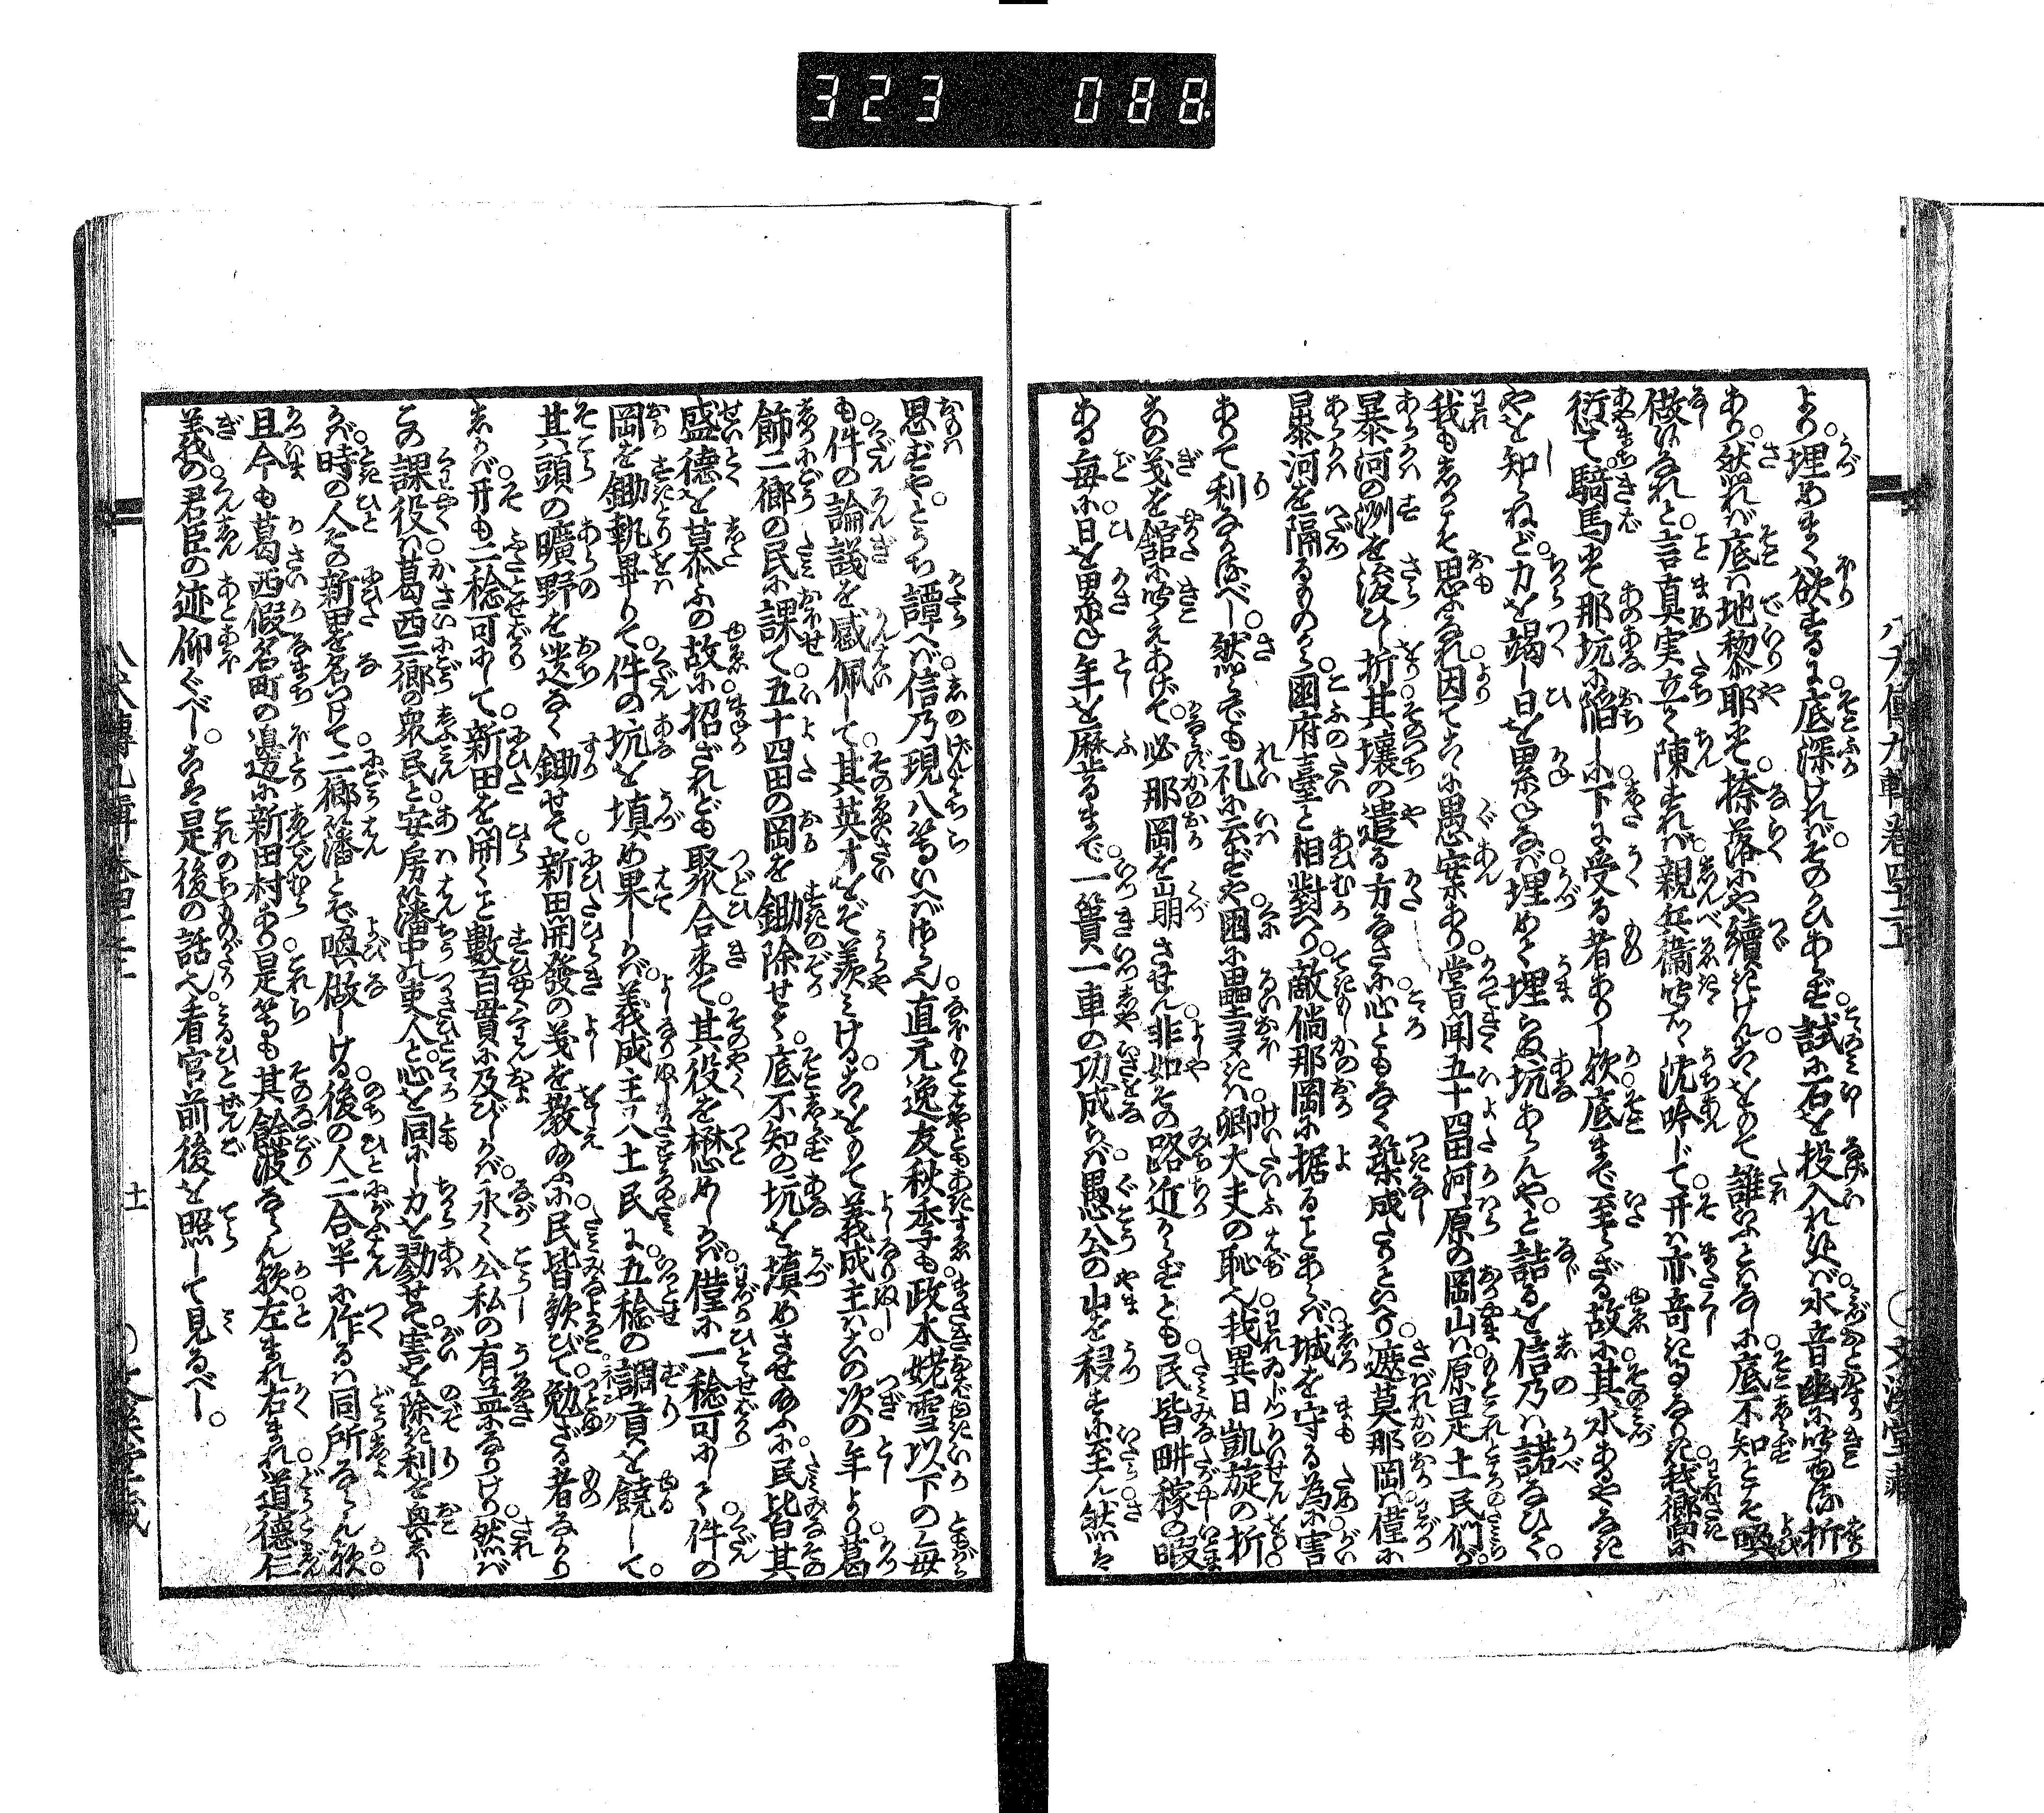 323 088
より。埋めまく欲するに底深ければ。そのかひあらず。試に石を投入れぬれば。水音幽に聞ゆる折
あり。然れば底は地黎耶。そ。捺落にや續きけん。こゝをもて誰いふとはなしに。底不知とぞ喚
做ぬなれ。と言真実立て陳ずれば。親兵衛聞つゝ沈吟じて。开は亦奇き事なりき。我郷に
衍て騎馬にて那坑に陥し。下に受る者ありし歟。底まで至らざる故に。其水あるやなき
やを知らねど。力を竭し日を累ねなば。埋めて埋らぬ坑あらんや。と詰るを信乃は諾なひて。
我もしかこそ思ふなれ。因てこゝに愚案あり。嘗聞。五十四田河原の岡山は。原是土民們が。
暴河の洲を浚ひし折。其壌の遣る方なきに。心ともなく築成したりといへり。遮莫那岡は。僅に
暴河を隔るものから。國府臺と相對へり。敵倘那岡に據ることあらば。城を守る為に害
ありて利なかるべし。然らでも礼に云ずや。國に壘多きは。卿大夫の恥也。我異日凱旋の折。
この義を舘に聞えあげて。必那岡を崩させん。非如その路近からずとも。民皆畊稼の暇
ある毎に。日を累ね年を歴るまで。一簣一車の功成らば。愚公の山を移すに至らん。然はこそ
思はずや。とうち譚へば。信乃現八等いへばさら也。直元逸友秋季も。政木姥雪以下の毎
も。件の論議を感佩して。其英才をぞ羨みける。こゝをもて義成主は。この次の年より。葛
飾二郷の民に課て。五十四田の岡を鋤除せて。底不知の坑を填めさせ給ふに。民皆其
盛徳を慕ふの故に。招ざれども聚合来て。其役を懋めしかば。僅に一稔可にして。件の
岡を鋤執畢りて。件の坑を填め果しかば。義成主八土民に。五稔の調貢を饒して。
其頭の曠野を送なく鋤せて。新田開發の義を教給ふに。民皆歓びて勉ざる者なかり
しかば。开も二稔可にして。新田を開くこと數百貫に及びしかば。永く公私の有益になりけり。然ば
この課役は。葛西二郷の衆民と。安房の藩中の吏人と。心を同にし力を勠せて。害を除き利を興せし
かば。時の人その新田を名つけて。二郷半藩とぞ喚做しける。後の人二合半に作るは同所ならん歟。
且今も葛西假名町の邊に新田村あり。是等も其餘波ならん歟。左まれ右まれ。道徳仁
義の君臣の迹仰ぐべし。こは是後の話也。看官前後を照して見るべし。
八犬傳九輯巻四十二
十一
文溪堂藏